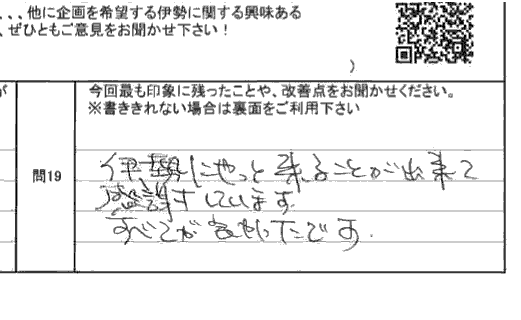 、、、他に企画を希望する伊勢に関する興味ある
、ぜひともご意見をお聞かせ下さい！
）
が
今回最も印象に残ったことや、改善点をお聞かせください。
※書ききれない場合は裏面をご利用下さい
問19
伊勢にやっと来ることが出来て
感謝しています
すべてが よかったです.